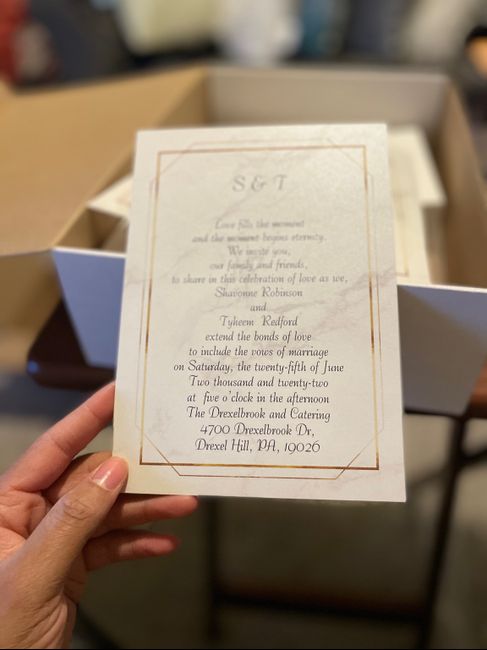 S & T
Love fills the moment
and the moment begins eternity.
We invite you,
our family and friends,
to share in this celebration of love as we,
Shavonne Robinson
and
Tyheem Redford
extend the bonds of love
to include the vows of marriage
on Saturday, the twenty-fifth of June
Two thousand and twenty-two
at five o'clock in the afternoon
The Drexelbrook and Catering
4700 Drexelbrook Dr,
Drexel Hill, PA, 19026